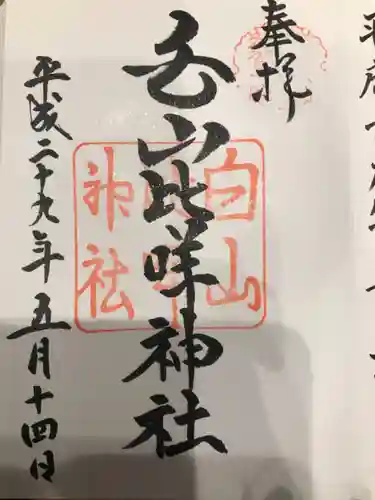 奉拝
白山比咩神社
白山
比咩
神社
平成二十九年五月十四日